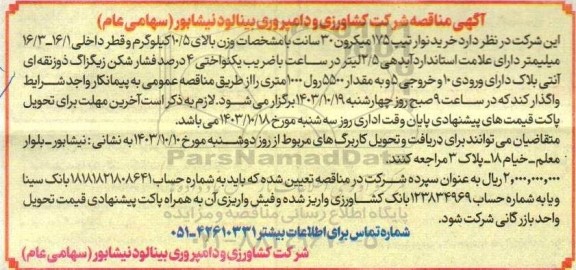 آگهی مناقصه شرکت کشاورزی و دامپروری بینالود نیشابور (سهامی عام)
این شرکت در نظر دارد خرید نوار تیپ ۱۷۵ میکرون ۳۰ سانت با مشخصات وزن بالای ۱۰/۵ کیلوگرم و قطر داخلی ۱۶/۱-۱۶/۳
میلیمتر دارای علامت استاندارد آبدهی ۲/۵ لیتر در ساعت با ضریب یکنواختی ۴ درصد فشار شکن زیگزاگ ذوزنقه ای
آنتی بلاک دارای ورودی ۱۰ و خروجی ۵ و به مقدار ۵۵۰۰ رول ۱۰۰۰ متری را از طریق مناقصه عمومی به پیمانکار واجد شرایط
واگذار کند که در ساعت ۹ صبح روز چهارشنبه ۱۴۰۳/۱۰/۱۹ برگزار می‌شود. لازم به ذکر است آخرین مهلت برای تحویل
پاکت قیمت های پیشنهادی پایان وقت اداری روز سه شنبه مورخ ۱۴۰۳/۱۰/۱۸ می باشد.
متقاضیان می توانند برای دریافت و تحویل کاربرگ های مربوط از روز دوشنبه مورخ ۱۴۰۳/۱۰/۱۰ به نشانی: نیشابور - بلوار
معلم - خیام ۱۸ - پلاک ۳ مراجعه کنند.
۲,۰۰۰,۰۰۰,۰۰۰ ریال به عنوان سپرده شرکت در مناقصه تعیین شده که باید به شماره حساب ۱۸۱۸۱۲۱۸۰۸۶۴۱ بانک سینا
و یا به شماره حساب ۱۲۳۸۳۴۹۶۹ بانک کشاورزی واریز شده و فیش واریزی آن به همراه پاکت پیشنهادی قیمت تحویل
واحد بازرگانی شرکت شود.
شماره تماس برای اطلاعات بیشتر ۴۲۶۱۰۳۳۱-۰۵۱
شرکت کشاورزی و دامپروری بینالود نیشابور (سهامی عام)